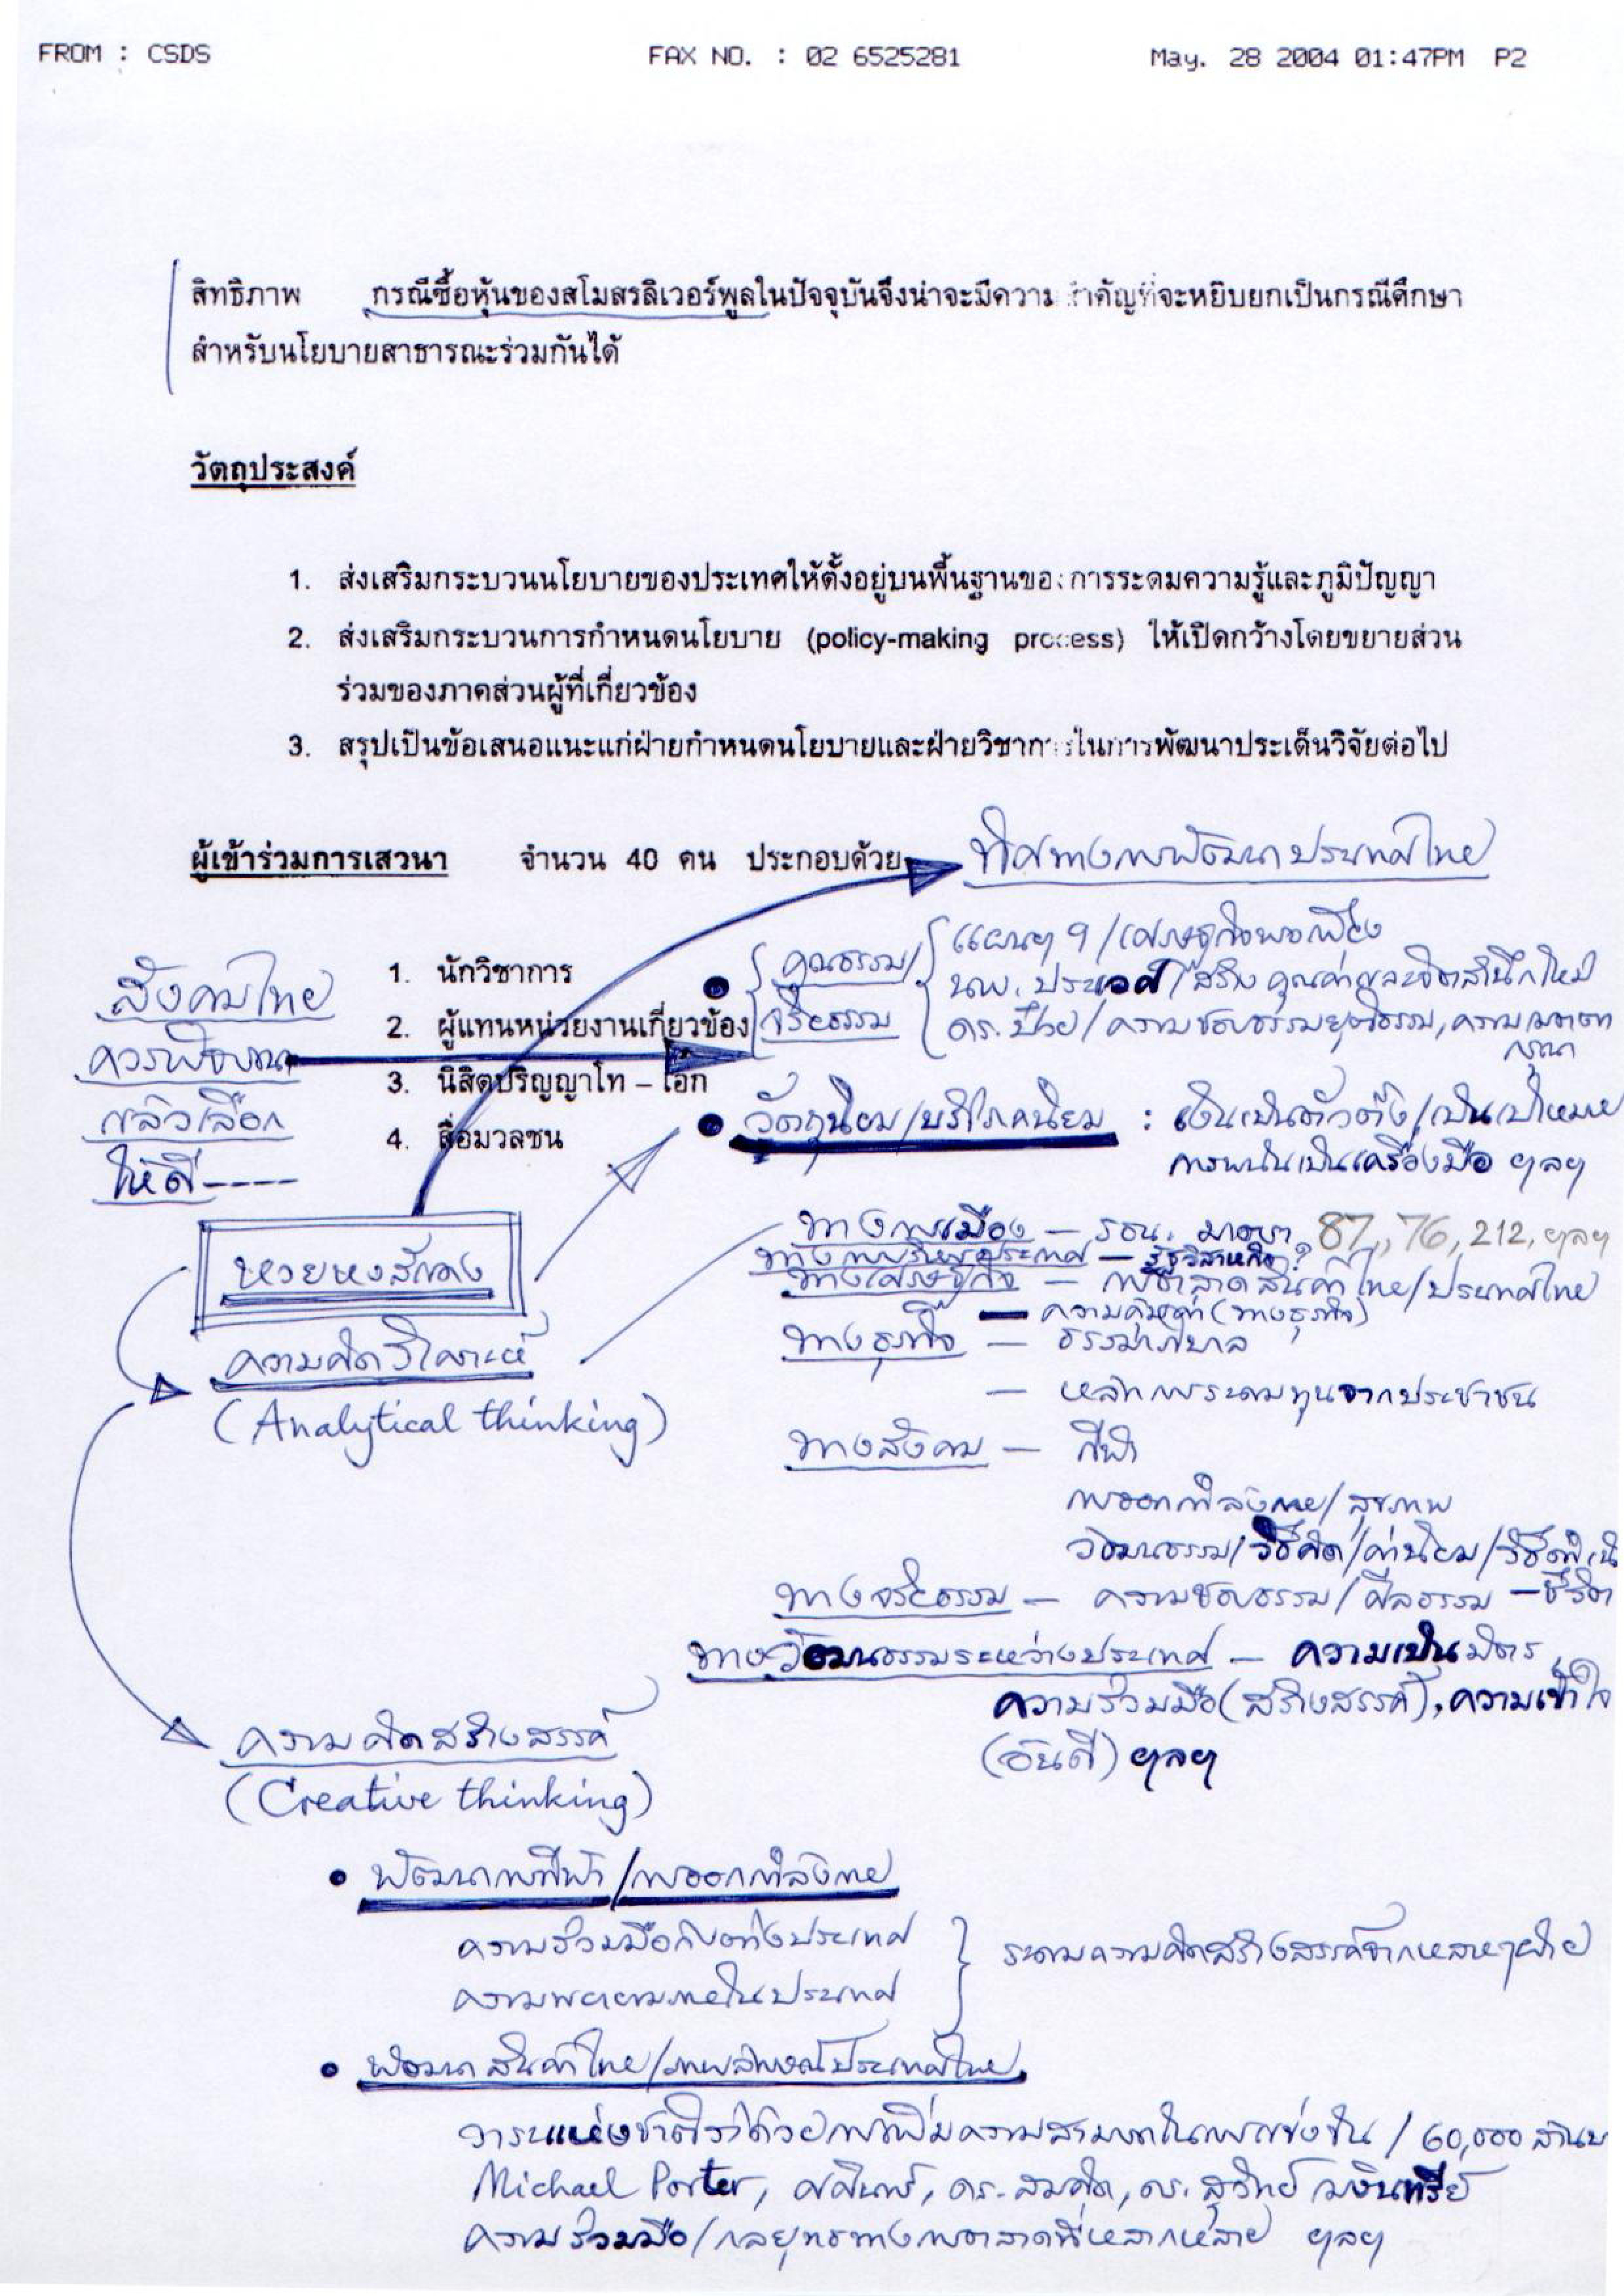 FROM : CSDS FAX NO. : 02 6525281 May. 28 2004 01:47PM P2
สิทธิภาพ กรณีซื้อหุ้นของสโมสรลิเวอร์พูลในปัจจุบันจึงน่าจะมีความสำคัญที่จะหยิบยกเป็นกรณีศึกษา
สำหรับนโยบายสาธารณะร่วมกันได้
วัตถุประสงค์
1. ส่งเสริมกระบวนนโยบายของประเทศให้ตั้งอยู่บนพื้นฐานของการระดมความรู้และภูมิปัญญา
2. ส่งเสริมกระบวนการกำหนดนโยบาย (policy-making process) ให้เปิดกว้างโดยขยายส่วน
ร่วมของภาคส่วนผู้ที่เกี่ยวข้อง
3. สรุปเป็นข้อเสนอแนะแก่ฝ่ายกำหนดนโยบายและฝ่ายวิชาการในการพัฒนาประเด็นวิจัยต่อไป
ผู้เข้าร่วมการเสวนา จำนวน 40 คน ประกอบด้วย
ทิศทางการพัฒนาประเทศไทย
1. นักวิชาการ
2. ผู้แทนหน่วยงานเกี่ยวข้อง
3. นิสิตปริญญาโท – เอก
4. สื่อมวลชน
สังคมไทย
ควรพิจารณา
แล้วเลือก
ให้ดี----
คุณธรรม/
จริยธรรม
แผนฯ 9/เศรษฐกิจพอเพียง
นพ.ประเวศ/สร้างคุณค่าและจิตสำนึกใหม่
ดร.ป๋วย/ความชอบธรรมยุติธรรม, ความเมตตา
กรุณา
วัตถุนิยม/บริโภคนิยม : เงินเป็นตัวตั้ง/เป็นเป้าหมาย
การพนันเป็นเครื่องมือ ฯลฯ
หวยหงส์แดง
ความคิดวิเคราะห์
(Analytical thinking)
ทางการเมือง – รธน. มาตรา 87, 76, 212, ฯลฯ
ทางการบริหารประเทศ – รัฐวิสาหกิจ?
ทางเศรษฐกิจ – การตลาดสินค้าไทย/ประเทศไทย
– ความคุ้มค่า (ทางธุรกิจ)
ทางธุรกิจ – ธรรมาภิบาล
– หลักการระดมทุนจากประชาชน
ทางสังคม – กีฬา
การออกกำลังกาย/สุขภาพ
วัฒนธรรม/วิธีคิด/ค่านิยม/วิธีดำเนิน
ทางจริยธรรม – ความชอบธรรม/ศีลธรรม –ชีวิต
ทางวัฒนธรรมระหว่างประเทศ – ความเป็นมิตร,
ความร่วมมือ(สร้างสรรค์), ความเข้าใจ
(อันดี) ฯลฯ
ความคิดสร้างสรรค์
(Creative thinking)
• พัฒนาการกีฬา/การออกกำลังกาย
ความร่วมมือกับต่างประเทศ
ความพยายามภายในประเทศ
ระดมความคิดสร้างสรรค์จากหลายๆฝ่าย
• พัฒนาสินค้าไทย/ภาพลักษณ์ประเทศไทย
วาระแห่งชาติว่าด้วยการเพิ่มความสามารถในการแข่งขัน / 60,000 ล้านบ
Michael Porter, ศศินทร์, ดร.สมคิด, ดร.สุวิทย์ เมษินทรีย์
ความร่วมมือ/กลยุทธทางการตลาดที่หลากหลาย ฯลฯ